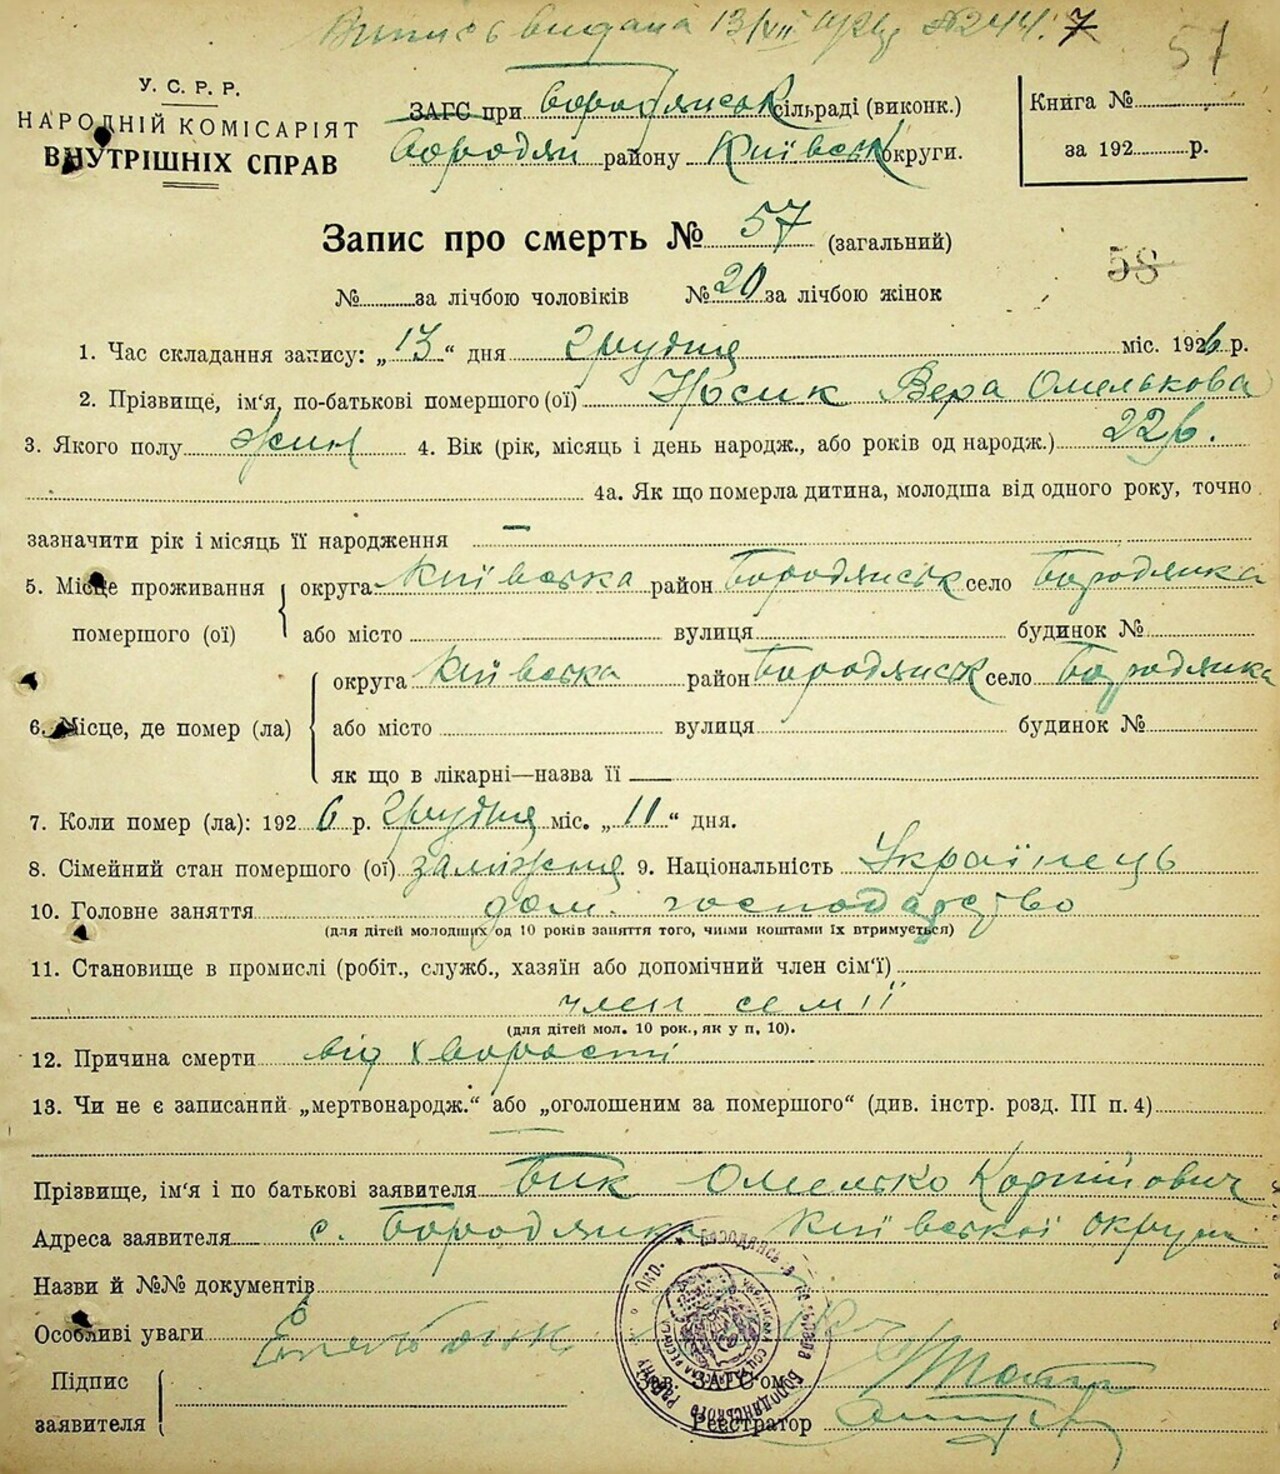 Випись видана 13/VII №244. 7
57
У. С. Р. Р.
НАРОДНІЙ КОМІСАРІЯТ
ВНУТРІШНІХ СПРАВ
ЗАГС при Бородянськ сільраді (виконк.)
Бородян району Київськ округи.
Книга №
за 192 р.
Запис про смерть № 57 (загальний)
58
№ за лічбою чоловіків № 20 за лічбою жінок
1. Час складання запису: „13“ дня Грудня міс. 1926 р.
2. Прізвище, ім‘я, по-батькові помершого (ої) Носик Вера Омелькова
3. Якого полу жін 4. Вік (рік, місяць і день народж., або років од народж.) 22
4а. Як що померла дитина, молодша від одного року, точно
зазначити рік і місяць її народження —
5. Місце проживання помершого (ої) округа Київська район Бородянськ село Бородянка
або місто вулиця будинок №
6. Місце, де помер (ла) округа Київська район Бородянськ село Бородянка
або місто вулиця будинок №
як що в лікарні—назва її
7. Коли помер (ла): 1926 р. Грудня міс. „11“ дня.
8. Сімейний стан помершого (ої) заміжня 9. Національність Українець
10. Головне заняття дом. господарство
(для дітей молодших од 10 років заняття того, чиїми коштами їх втримується)
11. Становище в промислі (робіт., служб., хазяїн або допомічний член сім‘ї)
член семії
(для дітей мол. 10 рок., як у п, 10).
12. Причина смерти від хворости
13. Чи не є записаний „мертвонародж.“ або „оголошеним за помершого“ (див. інстр. розд. III п. 4)
Прізвище, ім‘я і по батькові заявителя Бик Омелько Корнійович
Адреса заявителя с. Бородянка Київської округи
Назви й №№ документів
Особливі уваги
Підпис заявителя
Зав. ЗАГС‘ом
Реєстратор